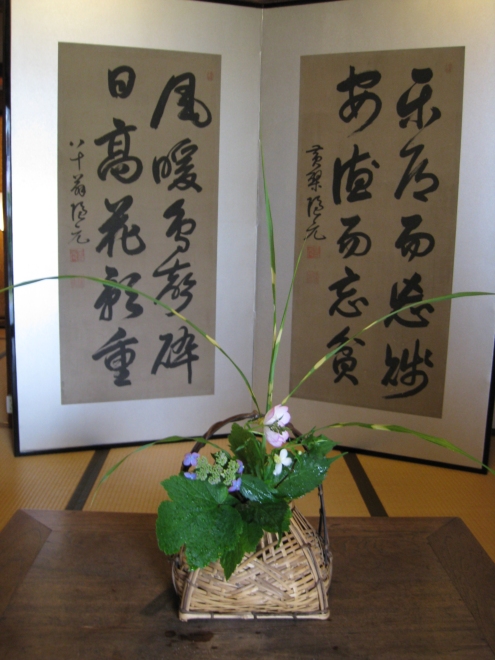 樂道而忘賤
安德而忘貧
黃檗隱元
風暖鳥聲碎
日高花影重
八十翁隱元